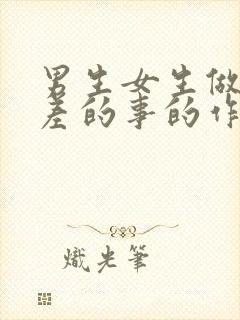 男生女生做
差的事的作
熾光筆